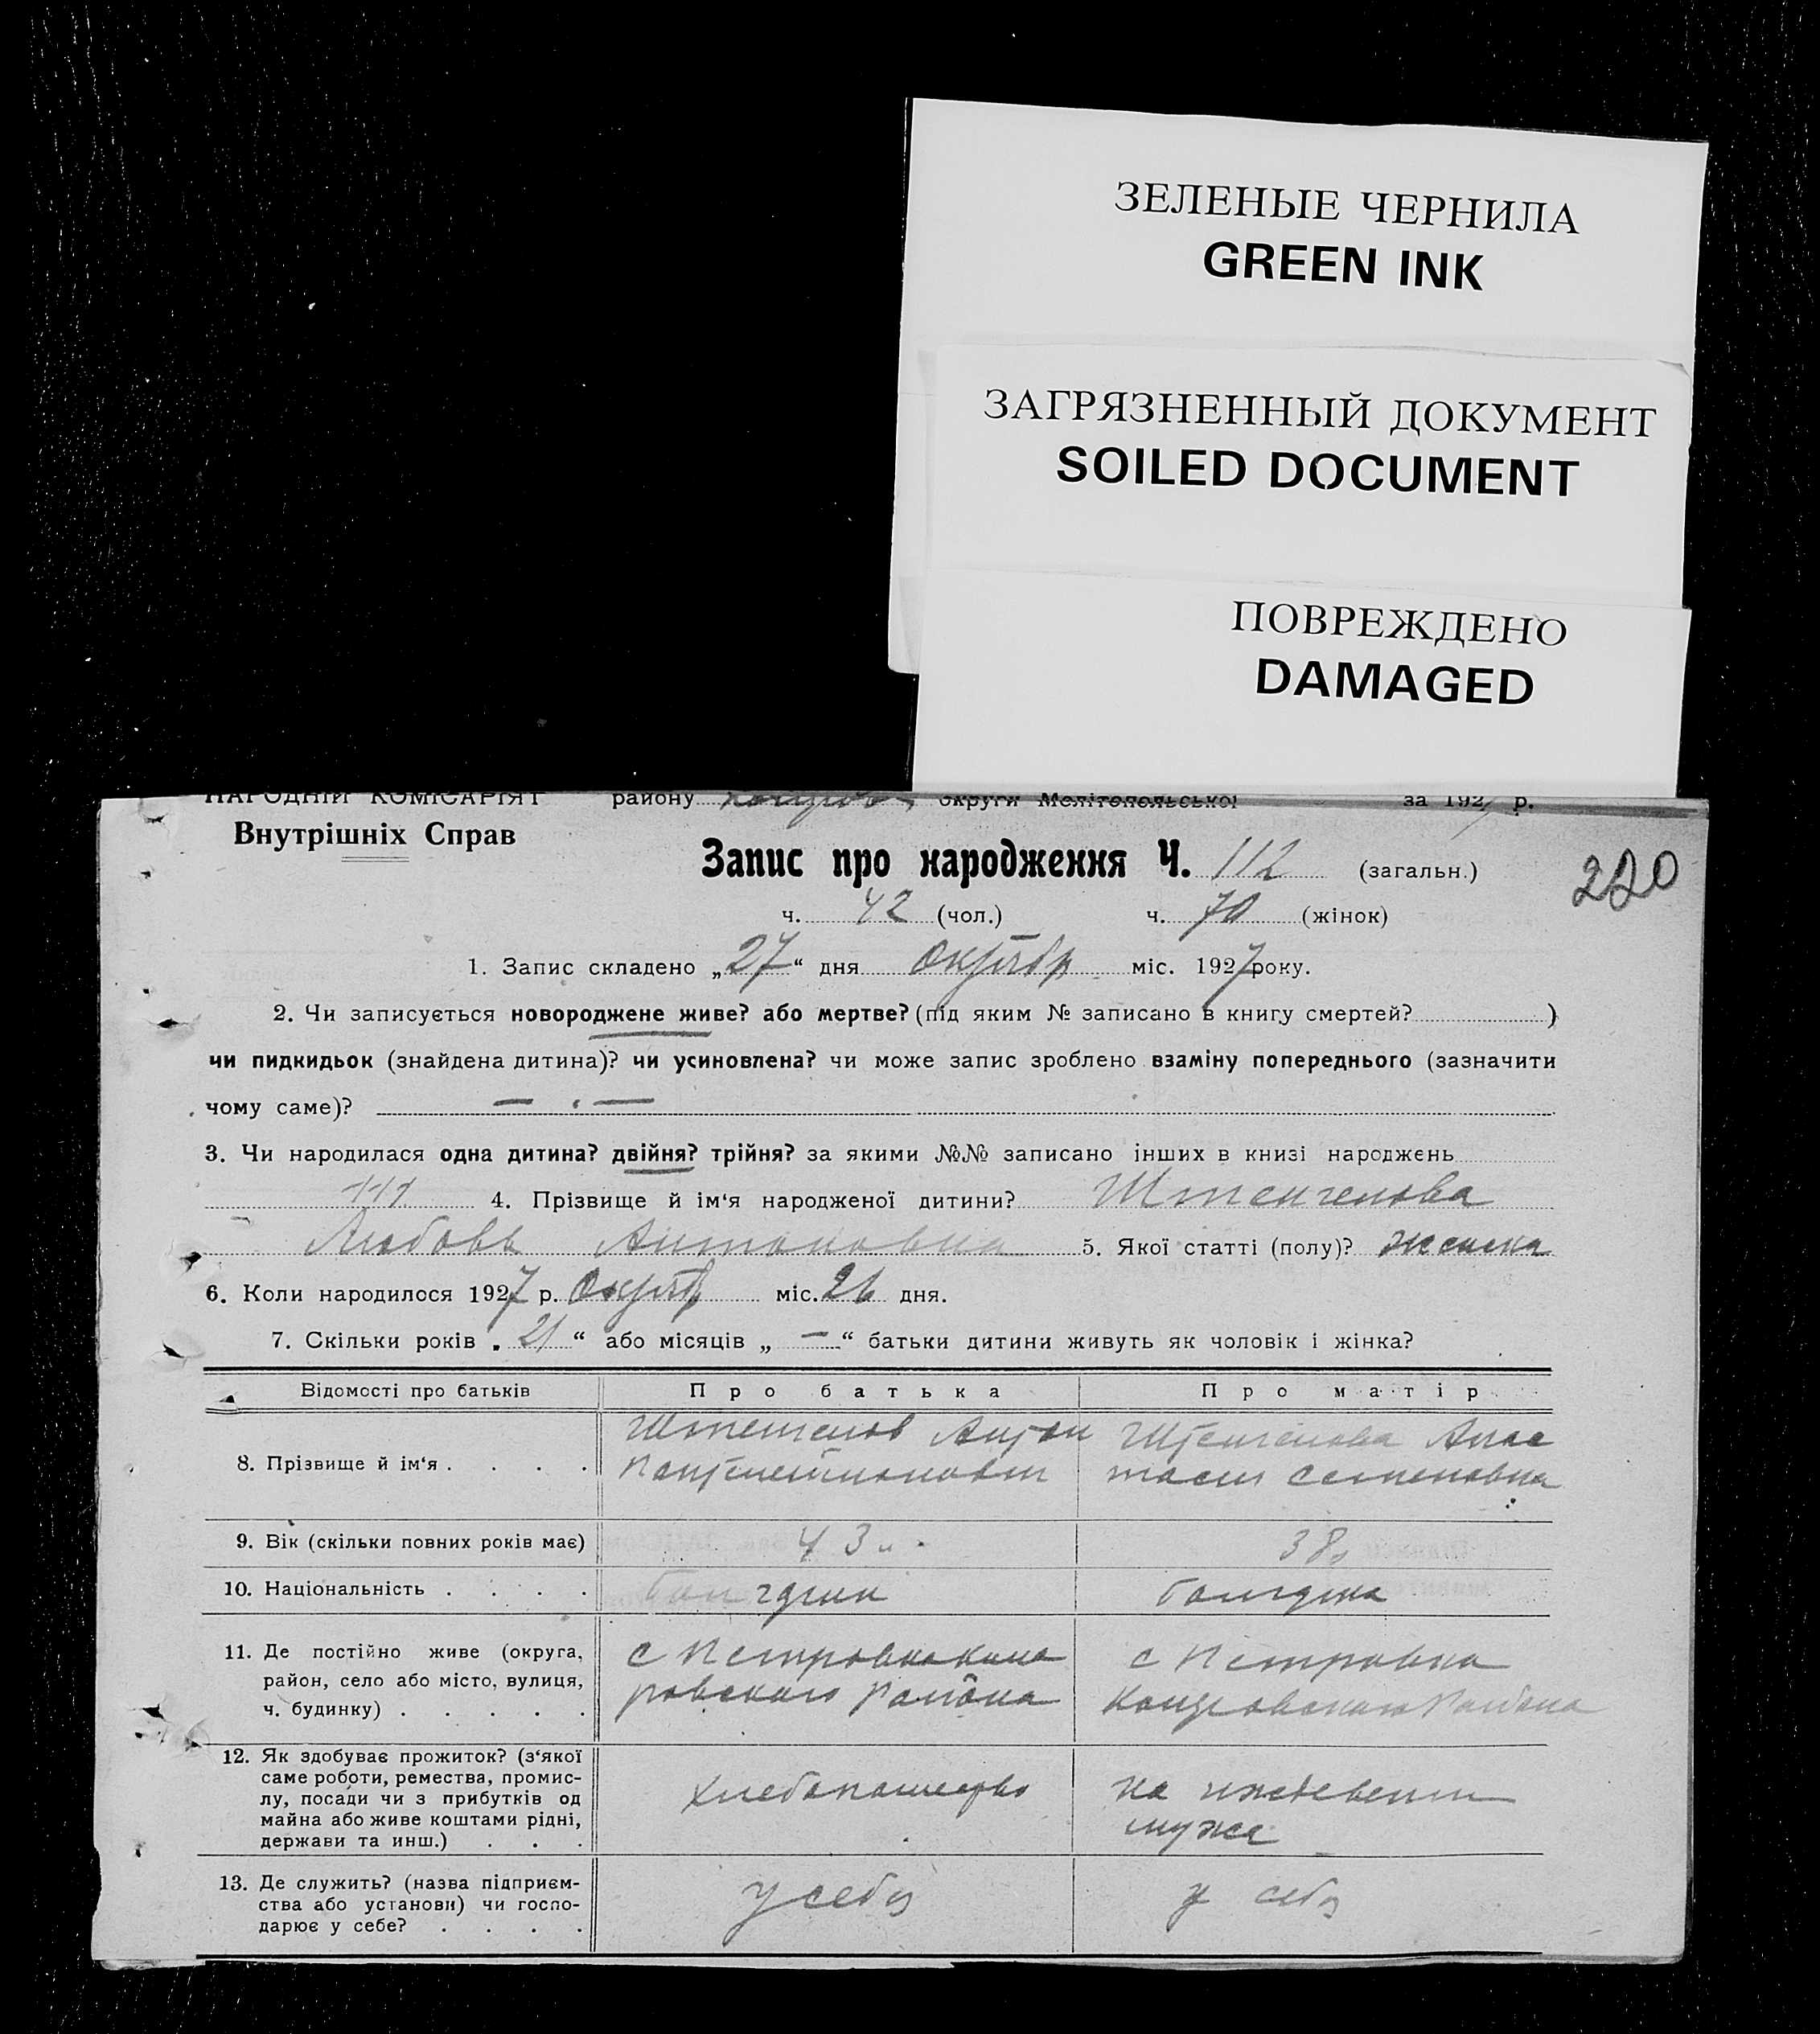 ЗЕЛЕНЫЕ ЧЕРНИЛА
GREEN INK
ЗАГРЯЗНЕННЫЙ ДОКУМЕНТ
SOILED DOCUMENT
ПОВРЕЖДЕНО
DAMAGED
НАРОДНІЙ КОМІСАРІЯТ району округи Мелітопольської за 1927 р.
Внутрішніх Справ
Запис про народження Ч. 112 (загальн.)
220
ч. 42 (чол.) ч. 70 (жінок)
1. Запис складено „27“ дня Октябр міс. 1927 року.
2. Чи записується новороджене живе? або мертве? (під яким № записано в книгу смертей? )
чи пидкидьок (знайдена дитина)? чи усиновлена? чи може запис зроблено взаміну попереднього (зазначити
чому саме)? — . —
3. Чи народилася одна дитина? двійня? трійня? за якими №№ записано інших в книзі народжень
111 4. Прізвище й ім‘я народженої дитини? Штенгелова
Любовь Антоновна 5. Якої статті (полу)? женска
6. Коли народилося 1927 р. Октябр міс. 26 дня.
7. Скільки років „ 21 “ або місяців „ — “ батьки дитини живуть як чоловік і жінка?
Відомості про батьків Про батька Про матір
8. Прізвище й ім‘я . . . . Антон Штенгелова Анас
тасия Семеновна
9. Вік (скільки повних років має) 43 38
10. Національність . . . .
11. Де постійно живе (округа, с Петровка с Петровка
район, село або місто, вулиця, ровского района района
ч. будинку) . . . . .
12. Як здобуває прожиток? (з‘якої
саме роботи, ремества, промис-
лу, посади чи з прибутків од хлебопашество на иждевении
майна або живе коштами рідні, мужа
держави та инш.) . . .
13. Де служить? (назва підприєм-
ства або установи) чи госпо- у себя у себя
дарює у себе? . . . .